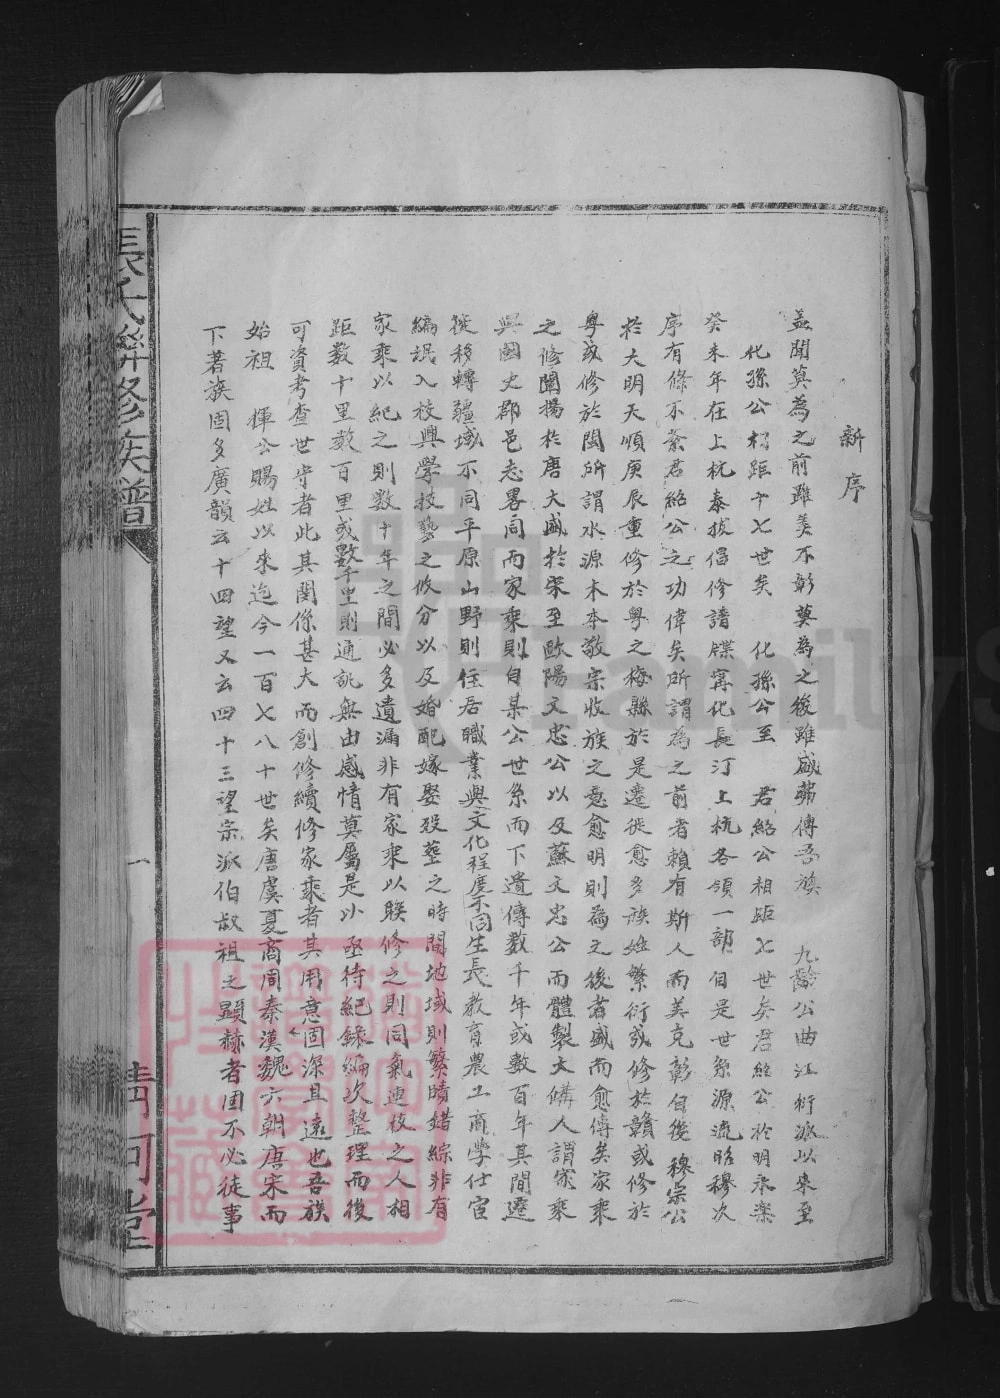 新序
蓋聞莫為之前雖美不彰莫為之後雖盛弗傳吾族 九齡公曲江衍派以來至
化孫公相距十七世矣 化孫公至 君紹公相距七世矣君紹公於明永樂
癸未年在上杭泰拔倡修譜牒寗化長汀上杭各領一部自是世系源流昭穆次
序有條不紊君紹公之功偉矣所謂為之前者賴有斯人而美克彰自後 穆宗公
於大明天順庚辰重修於粤之梅縣於是遷徙愈多族姓繁衍或修於贛或修於
粤或修於閩所謂水源木本敬宗收族之意愈明則為之後者盛而愈傳矣家乘
之修闡揚於唐大盛於宋至歐陽文忠公以及蘇文忠公而體製大備人謂家乘
與國史郡邑志畧同而家乘則自某公世系而下遺傳數千年或數百年其間遷
徙移轉疆域不同平原山野則住居職業與文化程度不同生長教育農工商學仕宦
編氓入校興學技藝之攸分以及婚配嫁娶殁塟之時間地域則繁賾錯綜非有
家乘以紀之則數十年之間必多遺漏非有家乘以联修之則同氣連枝之人相
距数十里数百里或數千里則通訊無由感情莫屬是以亟待紀錄編次整理而後
可資考查世守者此其関係甚大而創修續修家乘者其用意固深且遠也吾族
始祖 揮公賜姓以來迄今一百七八十世矣唐虞夏商周秦漢魏六朝唐宋而
下著族固多廣韻云十四望又云四十三望宗派伯叔祖之顯赫者固不必徒事
張氏聯修族譜
一
清河堂
FamilyS